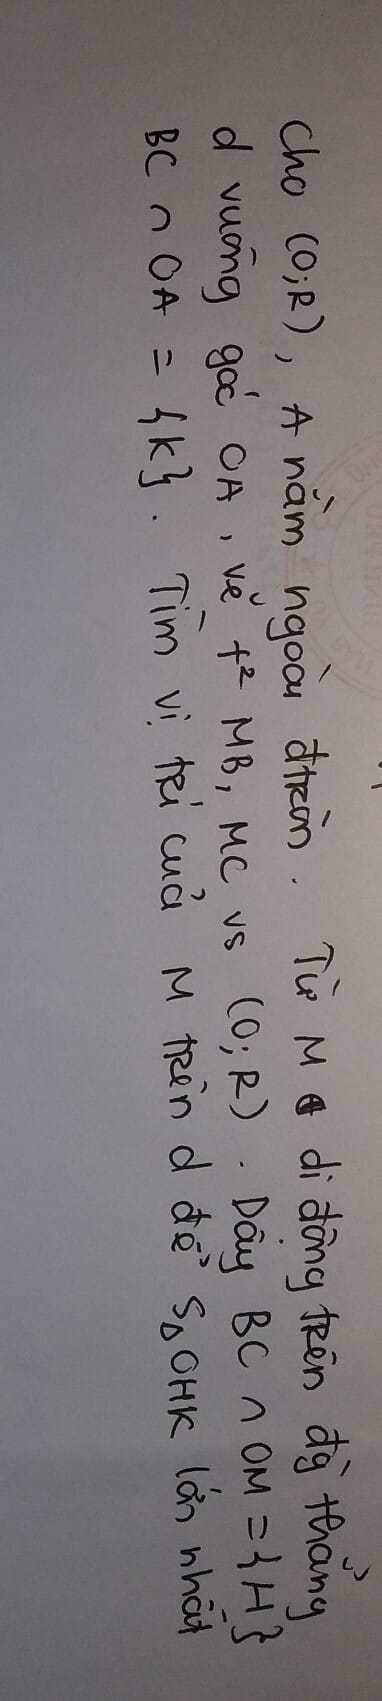 Cho (O;R), A nằm ngoài đtròn. Từ M di động trên đg thẳng
d vuông góc OA, vẽ t² MB, MC vs (O;R). Dây BC ∩ OM = {H}
BC ∩ OA = {K}. Tìm vị trí của M trên d để S∆OHK lớn nhất